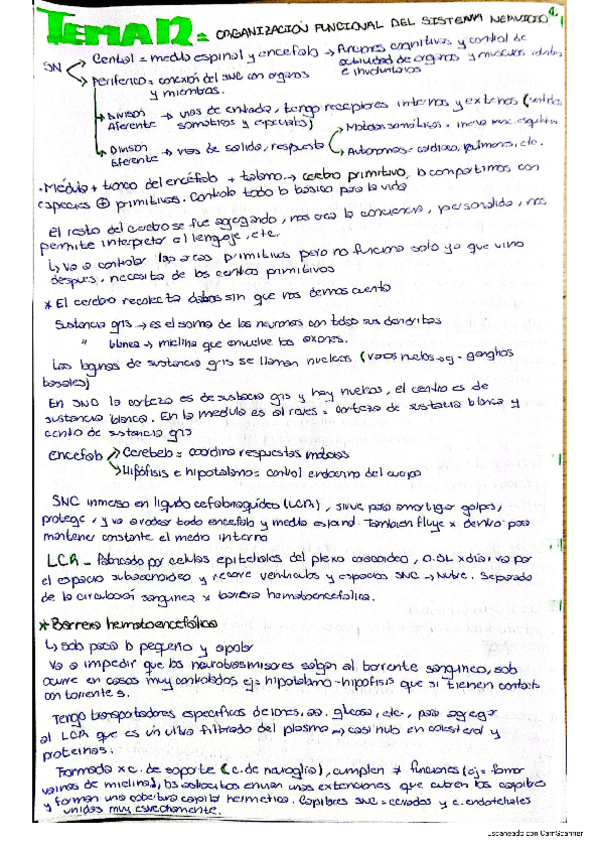 TEMA 12 = ORGANIZACIÓN FUNCIONAL DEL SISTEMA NERVIOSO
SN
Central = medula espinal y encefalo → Funciones cognitivas y control de actividad de organos y musculos
e involuntarios
periferico = conexión del SNC con organos
y miembros.
→ DIVISION Aferente → vias de entrada, tengo receptores internos y externos
somaticos y especiales)
→ DIVISION Eferente → vias de salida, respuesta
Motoras somáticas = inerva musc.
Autonomas = cardiaco, pulmonar, etc.
· Médula + tronco del encéfalo + talamo → cerebro primitivo, lo compartimos con
especies ⊕ primitivas. Controla todo lo básico para la vida
El resto del cerebro se fue agregando, nos crea la conciencia, personalidad, nos
permite interpretar el lenguaje, etc.
↳ Va a controlar las areas primitivas pero no funciona solo ya que vino
despues, necesita de los centros primitivos
* El cerebro recolecta datos sin que nos demos cuenta
Sustancia gris → es el soma de las neuronas con todas sus dendritas
" blanca → mielina que envuelve los axones.
Las lagunas de sustancia gris se llaman nucleos (varios nucleos → ej. ganglios
basales)
En SNC la corteza es de sustancia gris y hay nucleos, el centro es de
sustancia blanca. En la medula es al reves = corteza de sustancia blanca y
centro de sustancia gris
encefalo
Cerebelo = coordina respuestas motoras
Hipófisis e hipotalamo = control endocrino del cuerpo
SNC inmerso en liquido cefaloraquideo (LCR), sirve para amortiguar golpes,
protege, y va a rodear todo encefalo y medula espinal. Tambien fluye x dentro para
mantener constante el medio interno
LCR - Fabricado por celulas epiteliales del plexo coroideo, 0.5L x dia, va por
el espacio subaracnoideo y ventriculos y espacios SNC → Nutre. Separado
de la circulación sanguinea x barrera hematoencefalica.
* Barrera hematoencefálica
↳ solo pasa lo pequeño y apolar
Va a impedir que los neurotransmisores salgan al torrente sanguineo, solo
ocurre en casos muy controlados ej = hipotalamo-hipofisis que si tienen contacto
con torrente s.
Tengo transportadores especificos de iones, aa. glucosa, etc, para agregar
al LCR que es un ultra filtrado del plasma → casi nulo en colesterol y
proteinas.
Formada x c. de soporte (c. de neuroglia), cumplen ≠ funciones (ej = formar
vainas de mielina), los astrocitos envian unas extensiones que cubren los capilares
y forman una cobertura capilar hermetica. Capilares SNC = cerrados y c. endoteliales
unidas muy estrechamente.
Escaneado con CamScanner